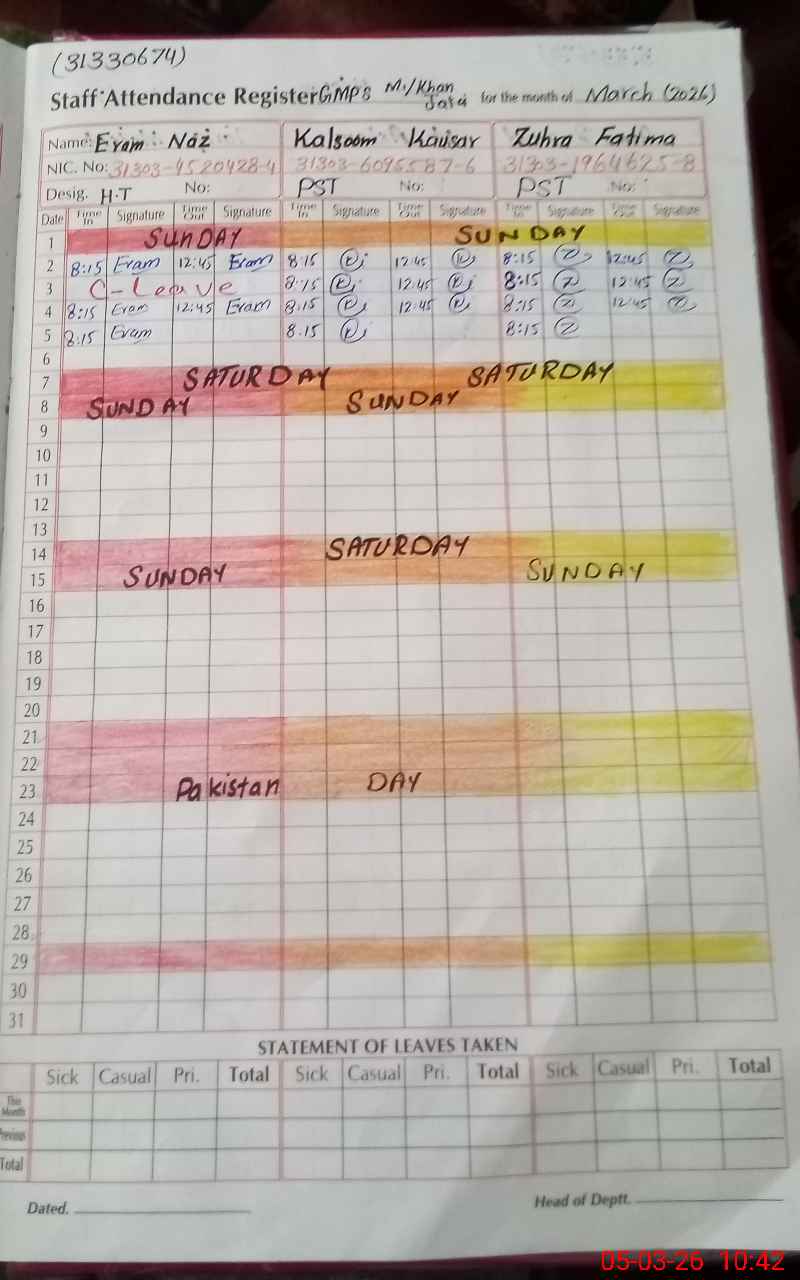 (31330674)
Staff Attendance Register GMPS M./Khan Jata for the month of March (2026)
Name: Eram Naz Kalsoom Kausar Zuhra Fatima
NIC. No: 31303-4520428-4 31303-6095587-6 31303-1964625-8
Desig. H-T No: PST No: PST No:
Date Time In Signature Time Out Signature Time In Signature Time Out Signature Time In Signature Time Out Signature
1 SUNDAY SUNDAY
2 8:15 Eram 12:45 Eram 8:15 12:45 8:15 12:45
3 C-Leave 8:15 12:45 8:15 12:45
4 8:15 Eram 12:45 Eram 8.15 12:45 8:15 12:45
5 8:15 Eram 8.15 8:15
6
7 SATURDAY SATURDAY
8 SUNDAY SUNDAY
9
10
11
12
13
14 SATURDAY
15 SUNDAY SUNDAY
16
17
18
19
20
21
22
23 Pakistan DAY
24
25
26
27
28
29
30
31
STATEMENT OF LEAVES TAKEN
Sick Casual Pri. Total Sick Casual Pri. Total Sick Casual Pri. Total
This Month
Previous
Total
Dated. Head of Deptt.
05-03-26 10:42